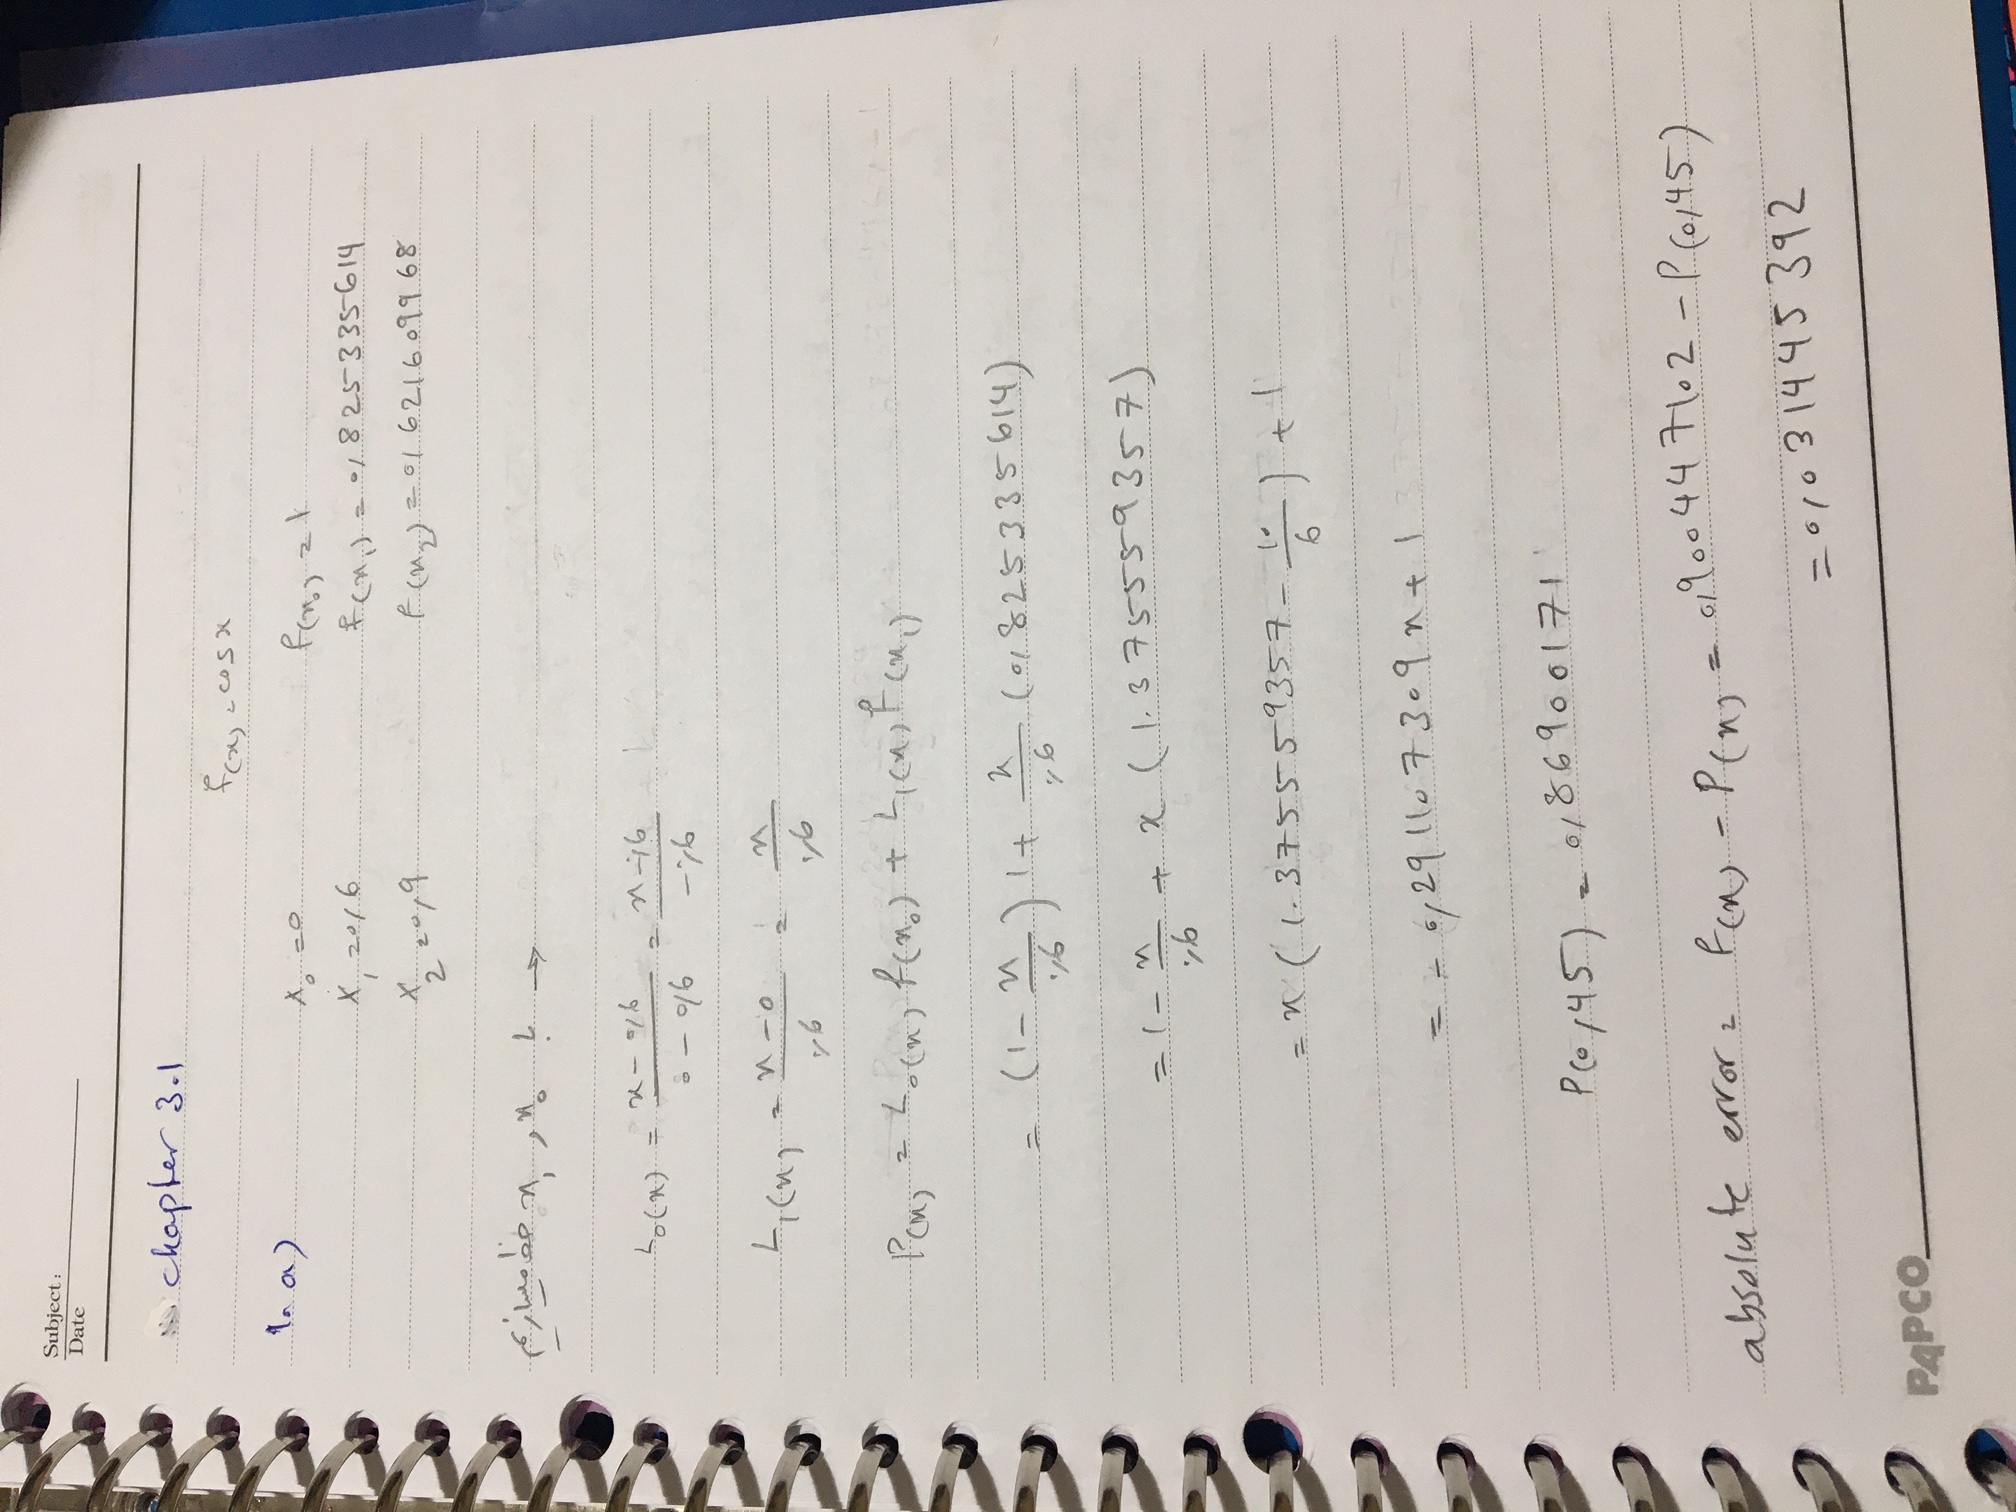 Subject:
Date
chapter 3.1
f(x) = cos x
1. a)
x₀ = 0 f(x₀) = 1
x₁ = 0,6 f(x₁) = 0,825335614
x₂ = 0,9 f(x₂) = 0,621609968
با x₀ و x₁ خط میسازیم →
L₀(x) = (x - 0,6)/(0 - 0,6) = (x - ۰,6)/(-۰,6)
L₁(x) = (x - 0)/(۰,6) = x/(۰,6)
P(x) = L₀(x) f(x₀) + L₁(x) f(x₁)
= (1 - x/۰,6) 1 + x/۰,6 (0,825335614)
= 1 - x/۰,6 + x (1.375559357)
= x (1.375559357 - 1۰/6) + 1
= - 0,291107309 x + 1
P(0,45) = 0,86900171
absolute error = f(x) - P(x) = 0,900447102 - P(0,45)
= 0,031445392
PAPCO